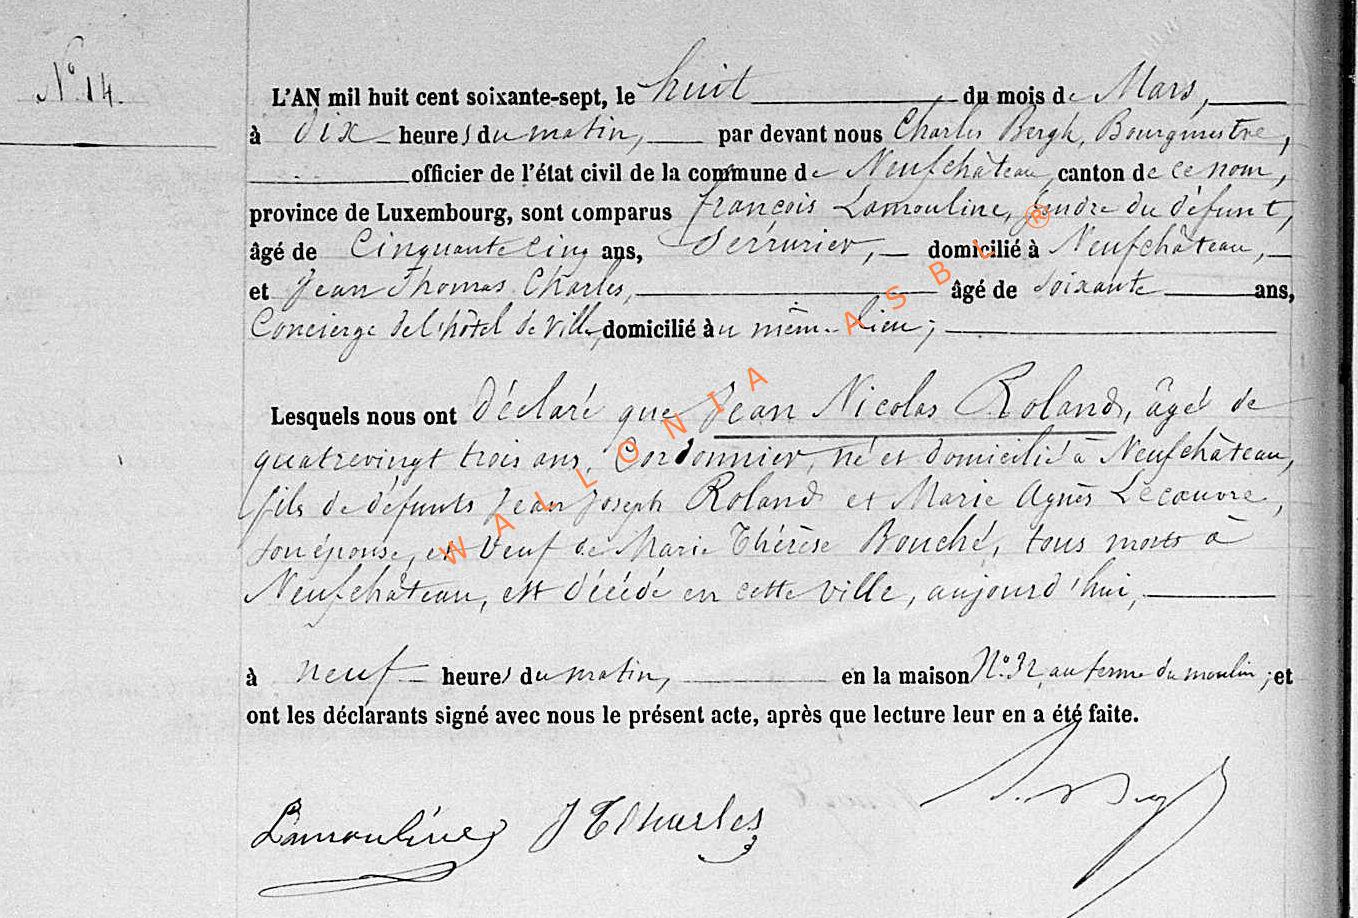 N° 14.
L'AN mil huit cent soixante-sept, le huit du mois de Mars,
à dix heures du matin, par devant nous Charles Bergh, Bourgmestre,
officier de l'état civil de la commune de Neufchâteau, canton de ce nom,
province de Luxembourg, sont comparus François Lamouline, gendre du défunt,
âgé de Cinquante cinq ans, Serrurier, domicilié à Neufchâteau,
et Jean Thomas Charles, âgé de soixante ans,
Concierge de l'hôtel de Ville, domicilié au même lieu;
Lesquels nous ont déclaré que Jean Nicolas Roland, âgé de
quatrevingt trois ans, Cordonnier, né et domicilié à Neufchâteau,
fils de défunts Jean Joseph Roland et Marie Agnès Lecœuvre,
son épouse, et Veuf de Marie Thérèse Bouché, tous morts à
Neufchâteau, est décédé en cette ville, aujourd'hui,
à neuf heures du matin, en la maison N° 32, au terme du moulin; et
ont les déclarants signé avec nous le présent acte, après que lecture leur en a été faite.
Lamouline JTCharles
WALLONIA ASBL ®